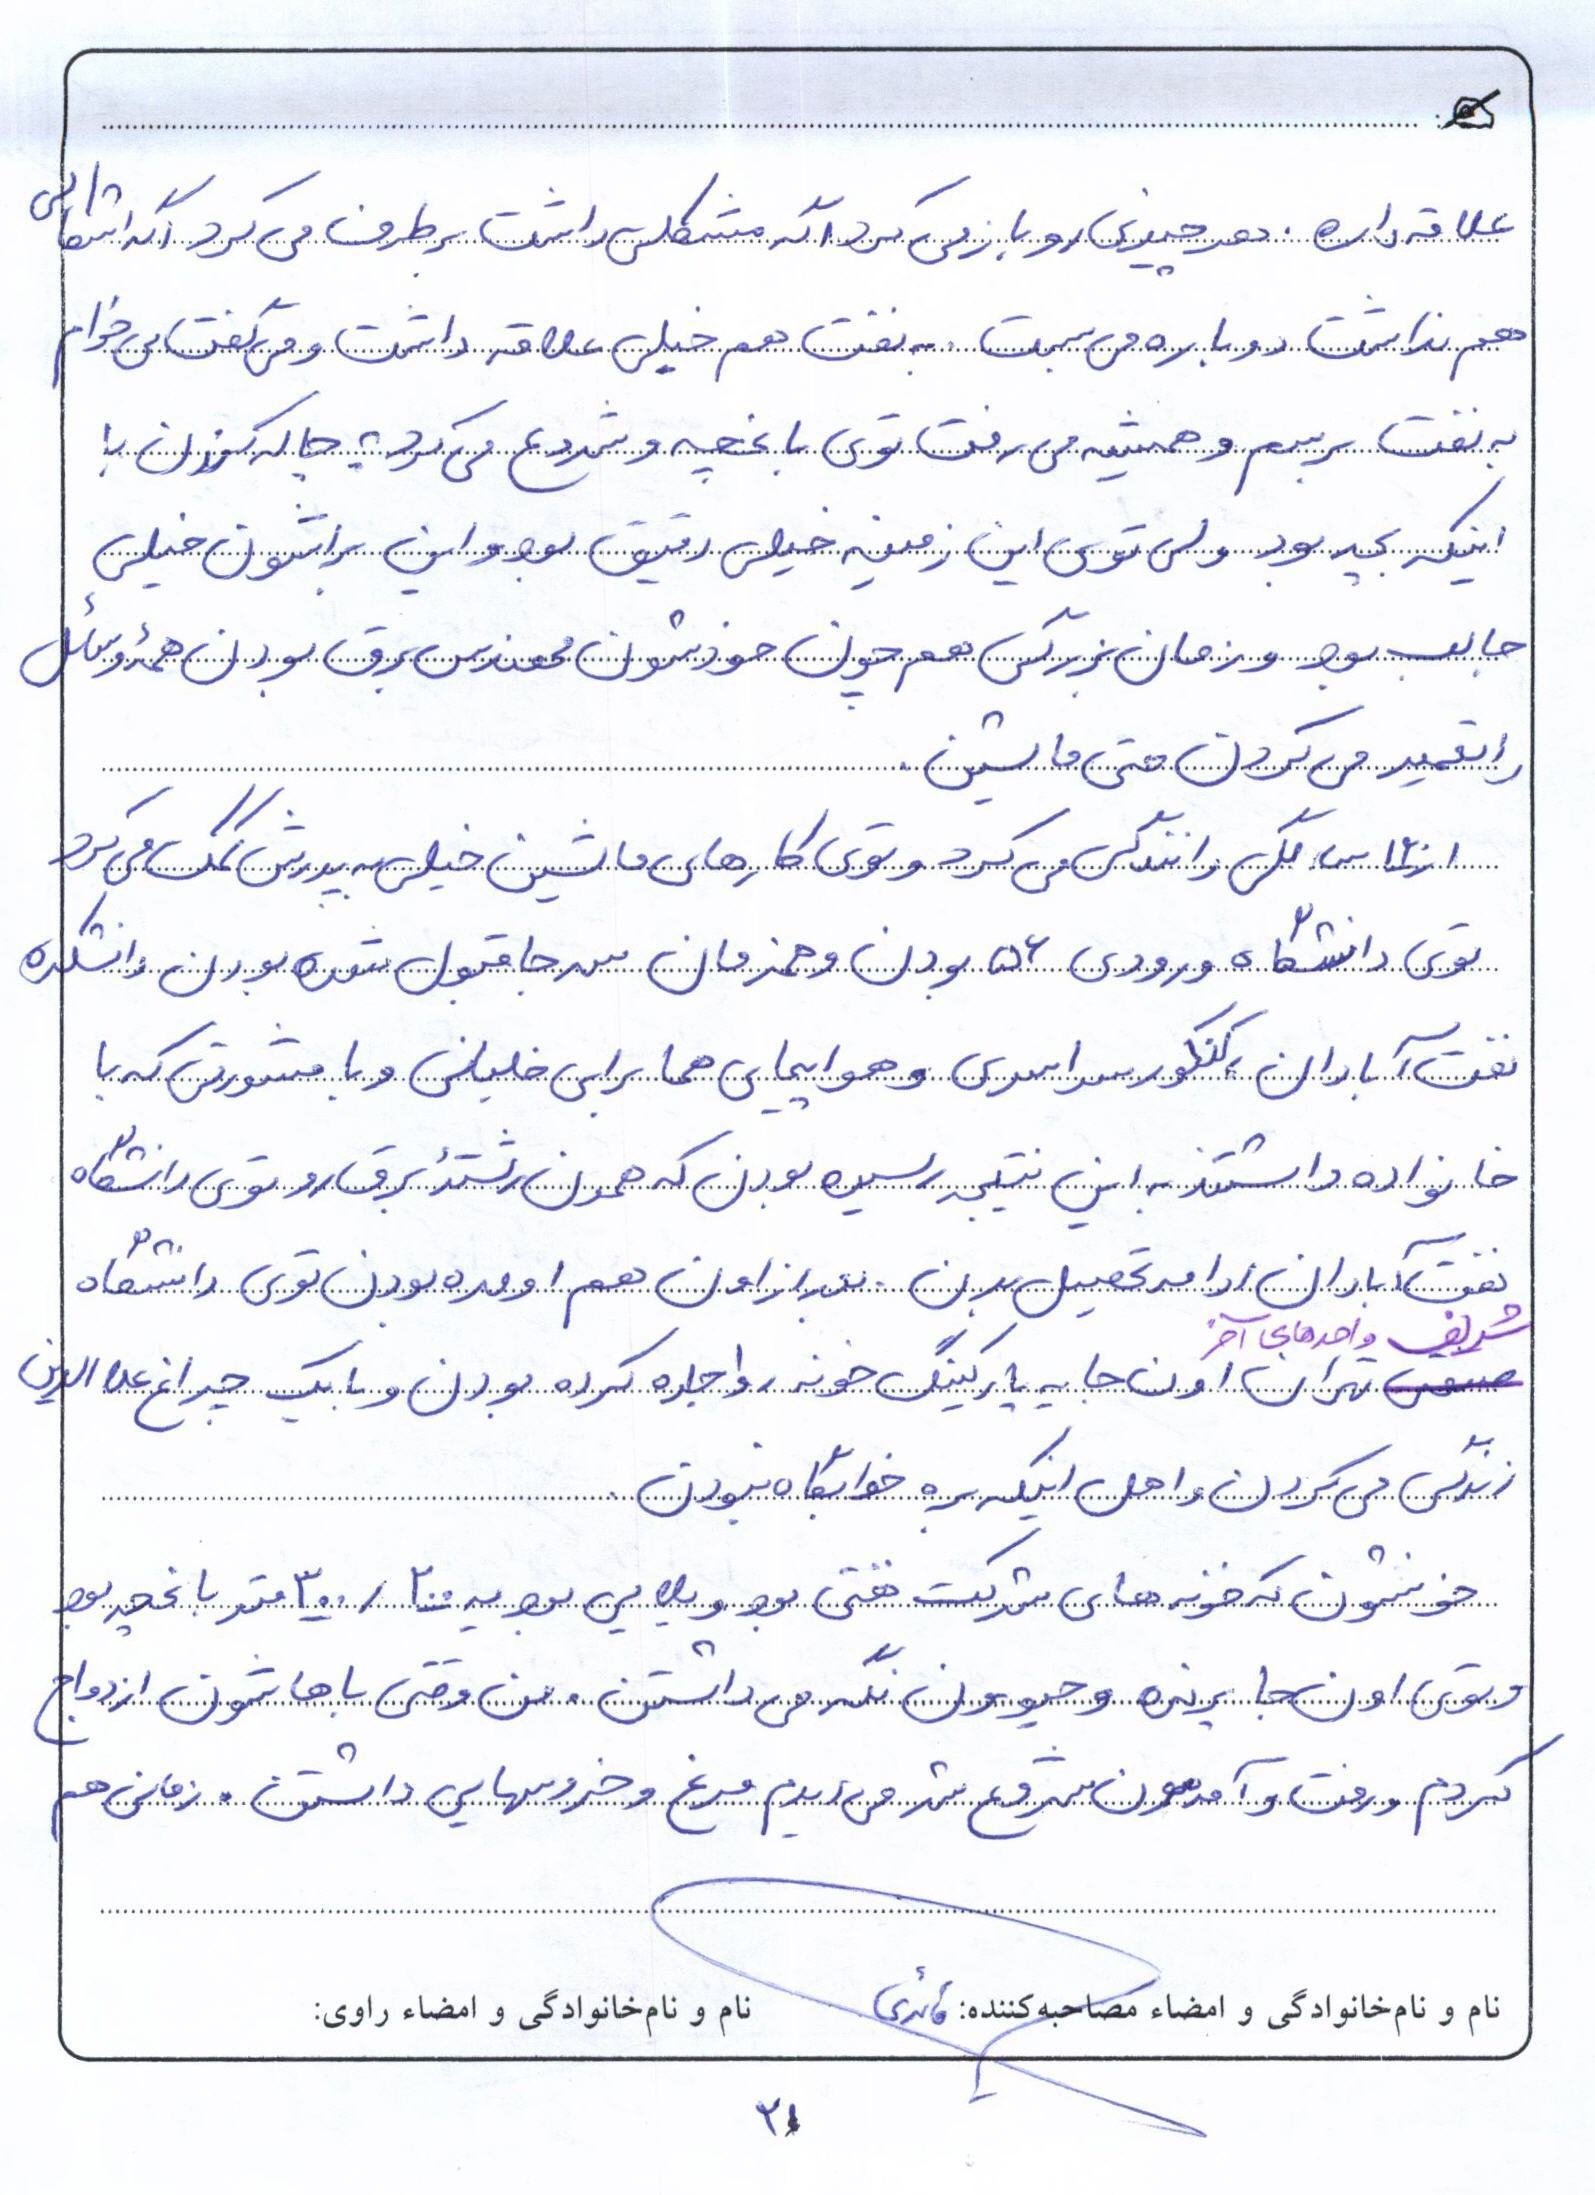 علاقه داره. هر چیزی رو باز می‌کرد اگه مشکلی داشت برطرف می‌کرد اگه اشکالی
هم نداشت دوباره می‌بست. به نفت هم خیلی علاقه داشت و می‌گفت می‌خوام
به نفت برسم و همیشه می‌رفت توی باغچه و شروع می‌کرد به چاله کندن با
اینکه بچه بود ولی توی این زمینه خیلی دقیق بود و این براشون خیلی
جالب بود و زمان بزرگی هم چون خودشون مهندس برق بودن همهٔ وسائل
را تعمیر می‌کردن حتی ماشین.
از ۱۲ سالگی رانندگی می‌کرد و توی کارهای ماشین خیلی به پدرش کمک می‌کرد
توی دانشگاه ورودی ۵۶ بودن و همزمان سه جا قبول شده بودن دانشکده
نفت آبادان، کنکور سراسری و هواپیمایی هما برای خلبانی و با مشورتی که با
خانواده داشتند به این نتیجه رسیده بودن که همون رشتهٔ برق رو توی دانشگاه
نفت آبادان ادامه تحصیل بدن. بعد از اون هم اومده بودن توی دانشگاه
شریف واحدهای آخر
تهران اون جا یه پارکینگ خونه رو اجاره کرده بودن و با یک چراغ علاالدین
زندگی می‌کردن و اهل اینکه بره خوابگاه نبودن.
خونشون که خونه های شرکت نفتی بود ویلایی بود یه ۲۰۰ / ۳۰۰ متر باغچه بود
و توی اون جا پرنده و حیوون نگه می‌داشتن. من وقتی باهاشون ازدواج
کردم و رفت و آمدمون شروع شد می‌دیدم مرغ و خروسهایی داشتن. زمانی هم
نام و نام‌خانوادگی و امضاء مصاحبه‌کننده: قائدی نام و نام‌خانوادگی و امضاء راوی:
۲۱